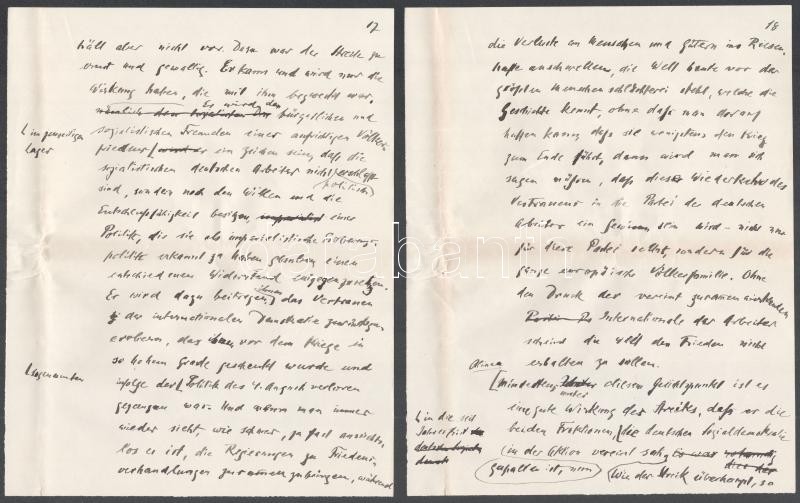 17
hält aber nicht vor. Dazu war der Streik zu
ernst und gewaltig. Er kann und wird nur die
Wirkung haben, die mit ihm bezweckt war,
Es wird den
bürgerlichen und
sozialistischen Freunden einer aufrichtigen Völker-
[im jenseitigen
Lager
frieden [ er ein Zeichen sein, daß die
sozialistischen deutschen Arbeiter nicht erschlafft
politisch
sind, sondern noch den Willen und die
Entschlußfähigkeit besitzen, einer
Politik, die sie als imperialistische Eroberungs-
politik erkannt zu haben glauben, einen
entschiedenen Widerstand entgegenzusetzen.
Er wird dazu beitragen, ihnen das Vertrauen
der internationalen Demokratie zurückzu
erobern, das ihnen vor dem Kriege in
so hohem Grade geschenkt wurde und
[sogenannten
infolge der [Politik des 4. August verloren
gegangen war. Und wenn man immer
wieder sieht, wie schwer, ja fast aussichts-
los es ist, die Regierungen zu Friedens-
verhandlungen zusammenzubringen, während
18
die Verluste an Menschen und Gütern ins Riesen-
hafte anschwellen, die Welt heute vor der
größten Menschenschlächterei steht, welche die
Geschichte kennt, ohne daß man darauf
hoffen kann, daß sie wenigstens den Krieg
zum Ende führt, dann wird man sich
sagen müssen, daß diese Wiederkehr des
Vertrauens in die Partei der deutschen
Arbeiter ein Gewinn sein wird – nicht nur
für diese Partei selbst, sondern für die
ganze europäische Völkerfamilie. Ohne
den Druck der vereint zusammenwirkenden
Internationale der Arbeiter
scheint die Welt den Frieden nicht
erhalten zu sollen.
Alinea
[Mindestens unter diesem Gesichtspunkt ist es
eine gute Wirkung des Streiks, daß er die
[in die seit
beiden Fraktionen, die deutschen Sozialdemokratie
in der Aktion vereint sah.
gespalten ist, nun
Wie der Streik überhaupt, so
darabanth